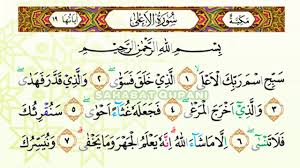 مكية سورة الأعلى آياتها ١٩
بِسْمِ اللَّهِ الرَّحْمَٰنِ الرَّحِيمِ
سَبِّحِ اسْمَ رَبِّكَ الْأَعْلَى ١ الَّذِي خَلَقَ فَسَوَّىٰ ٢ وَالَّذِي قَدَّرَ فَهَدَىٰ
٣ وَالَّذِي أَخْرَجَ الْمَرْعَىٰ ٤ فَجَعَلَهُ غُثَاءً أَحْوَىٰ ٥ سَنُقْرِئُكَ
SAHABAT QURANI
فَلَا تَنْسَىٰ ٦ إِلَّا مَا شَاءَ اللَّهُ إِنَّهُ يَعْلَمُ الْجَهْرَ وَمَا يَخْفَىٰ ٧ وَنُيَسِّرُكَ